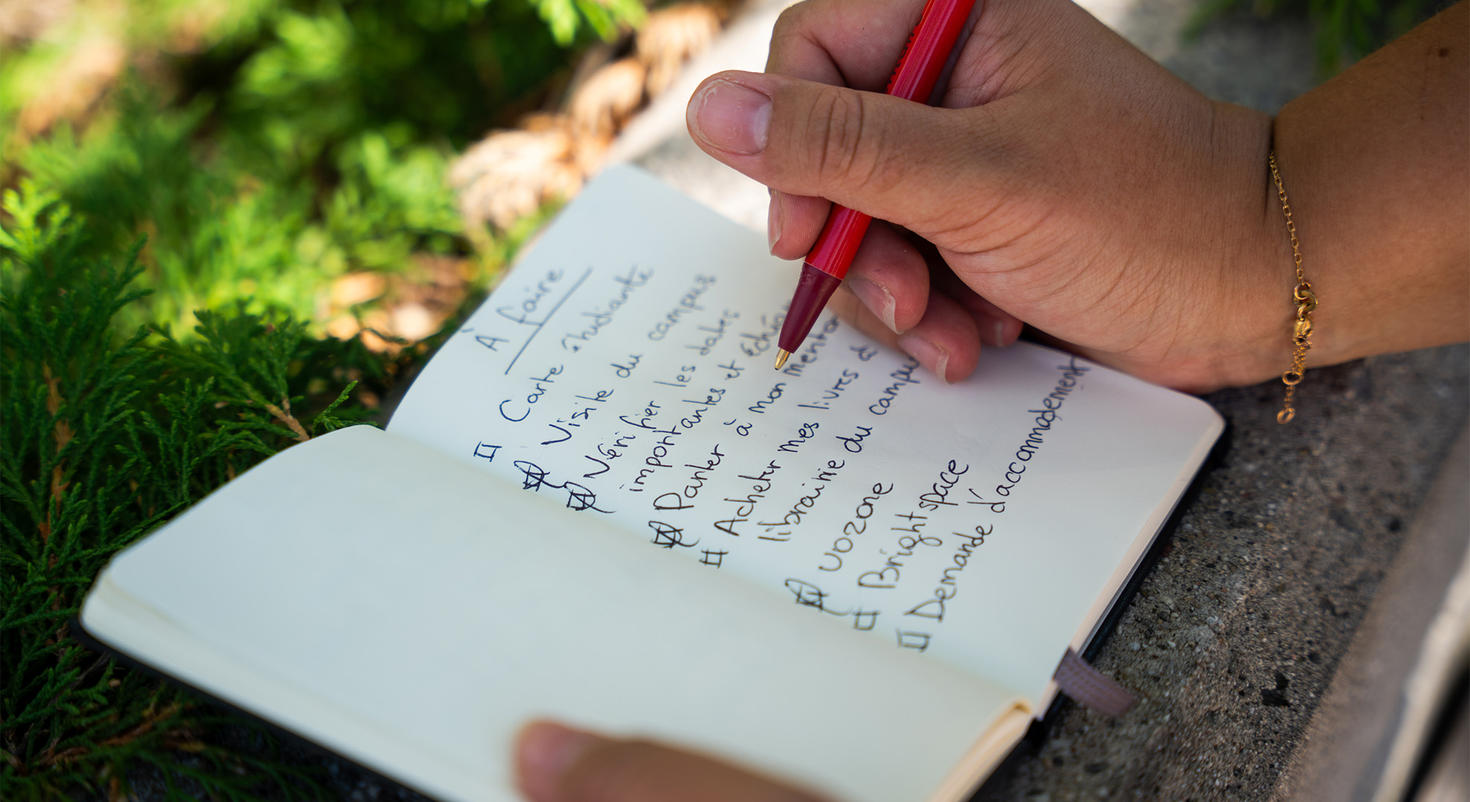 À faire
Carte étudiante
Visite du campus
Vérifier les dates
importantes et
Parler à mon mentor
Acheter mes livres à
librairie du campus
uozone
Brightspace
Demande d'accommodement